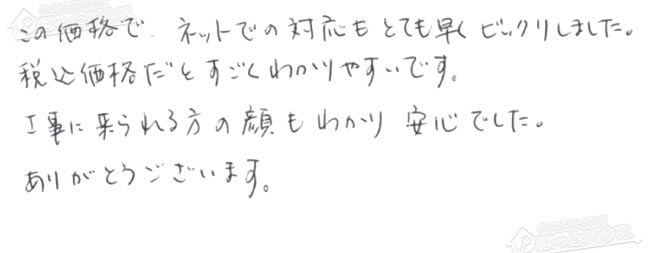 この価格で ネットでの対応もとても早くビックリしました。
税込価格だとすごくわかりやすいです。
工事に来られる方の顔もわかり 安心でした。
ありがとうございます。